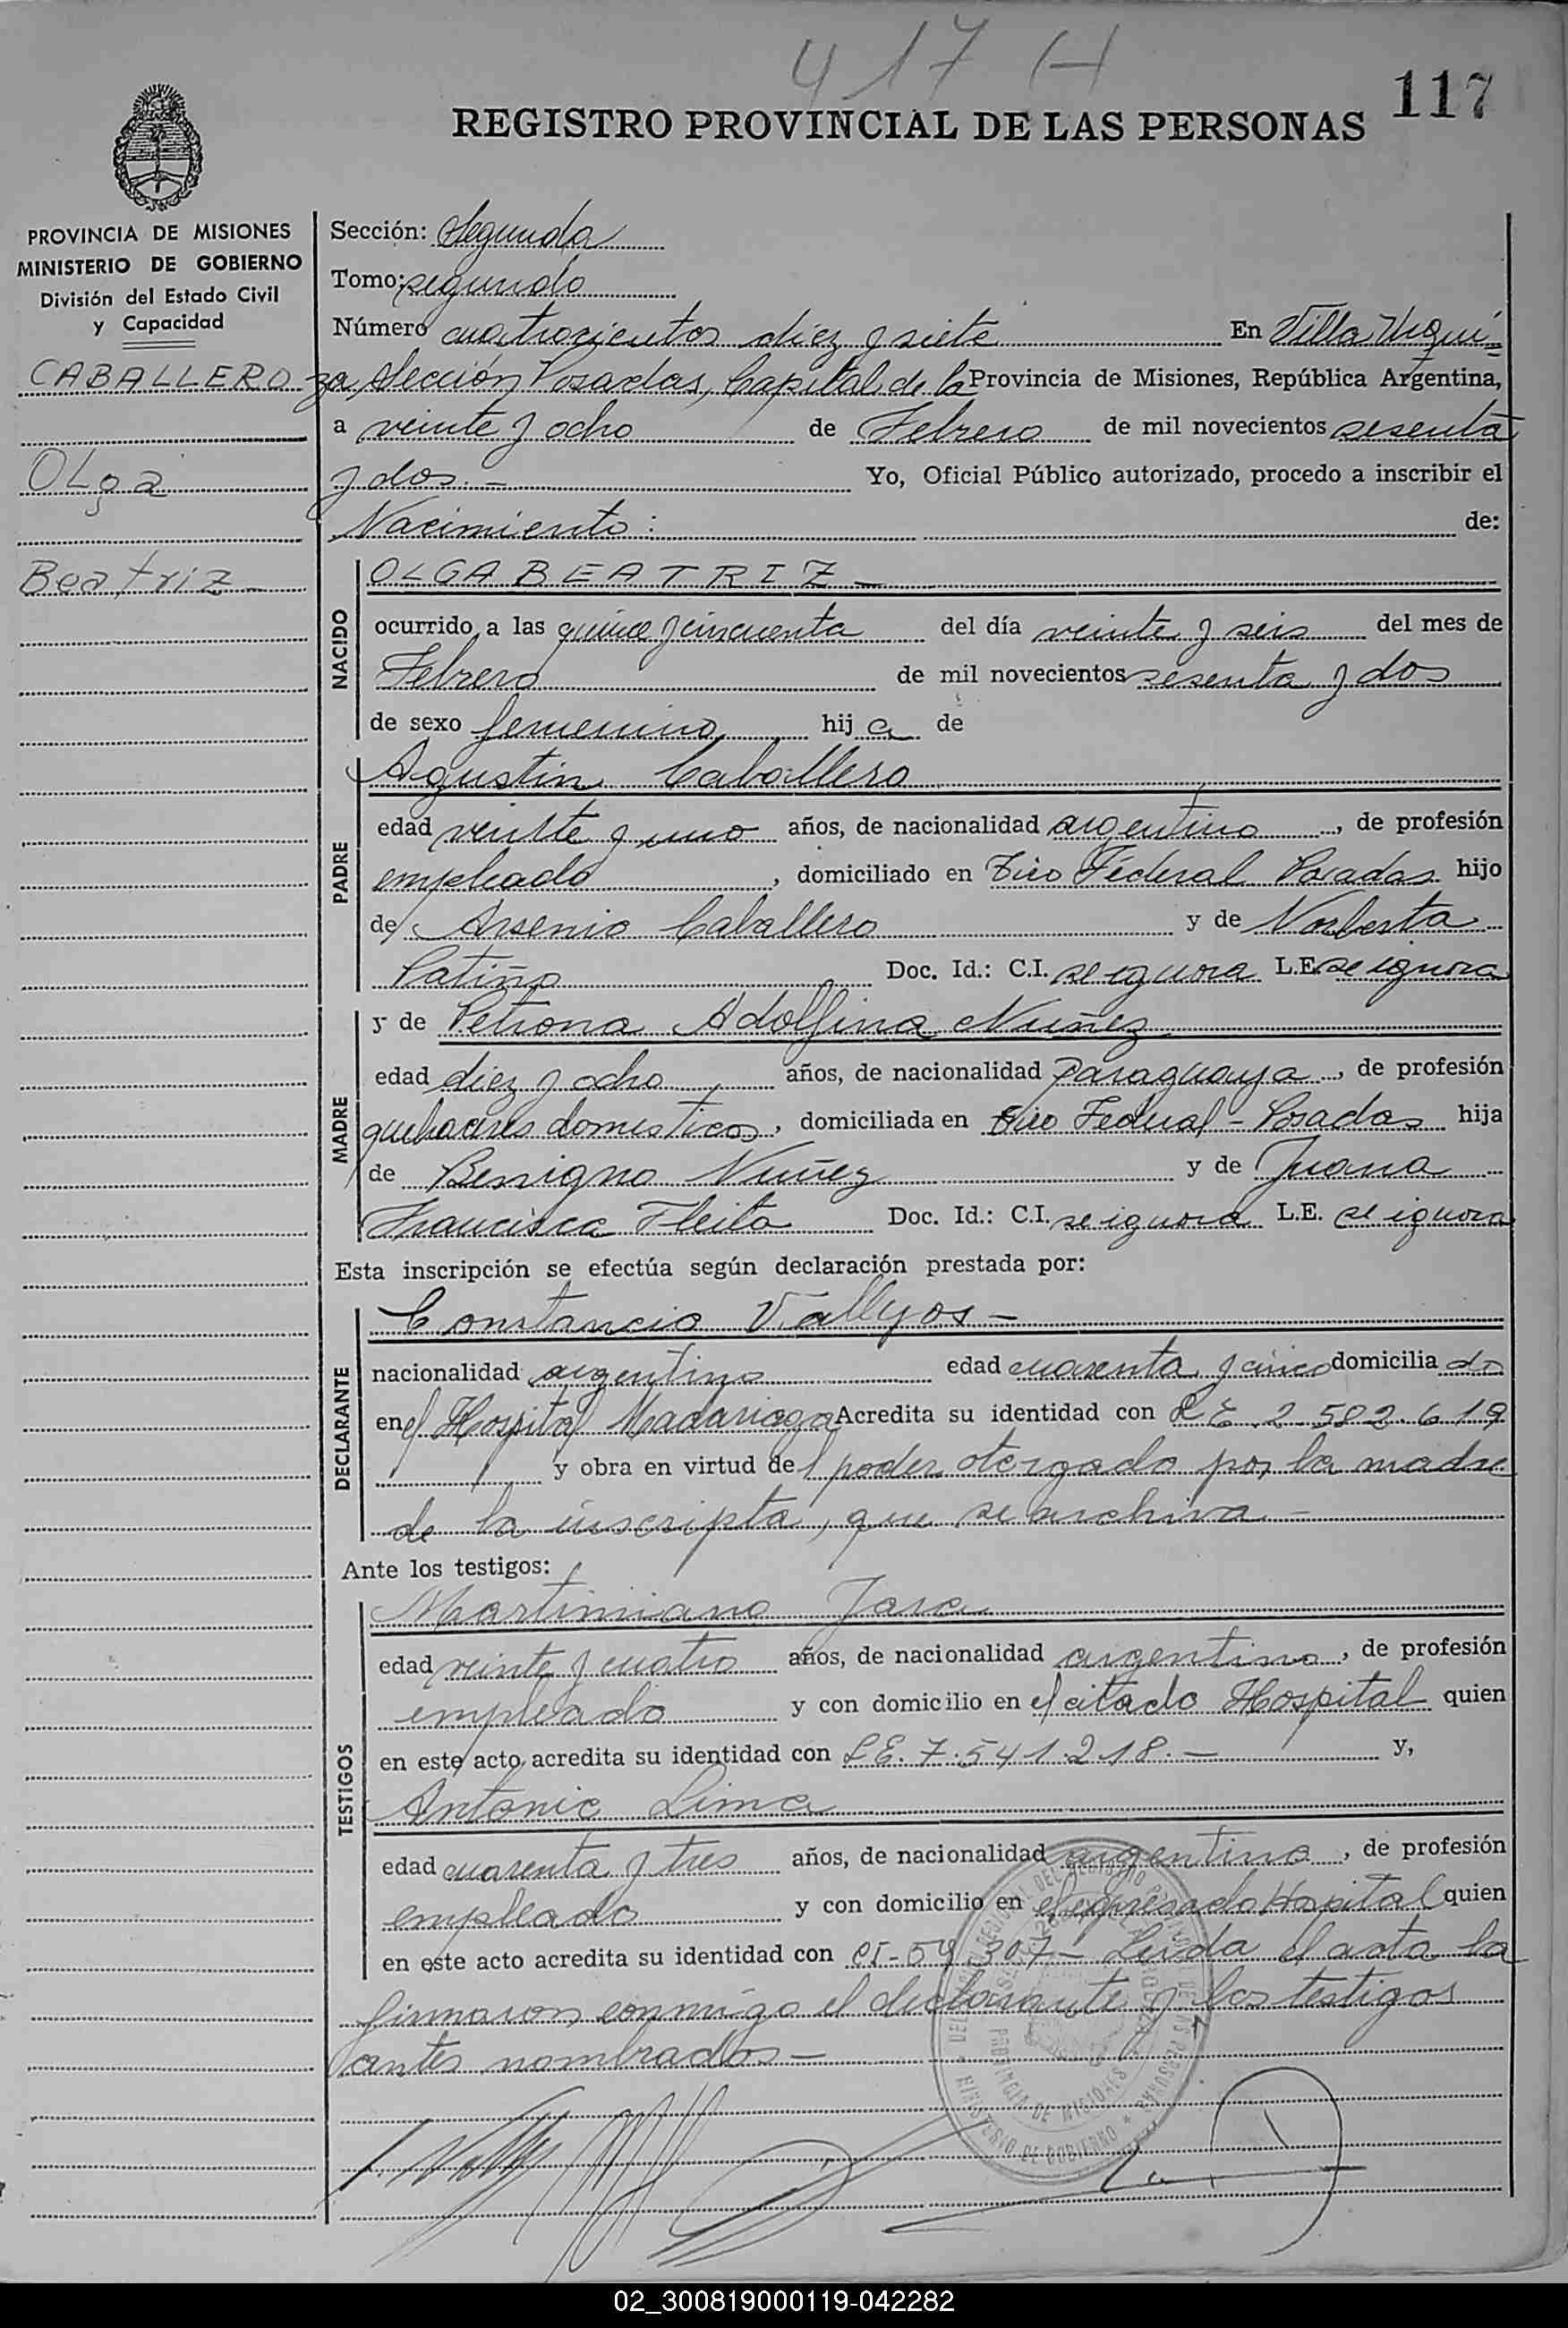 417 H
117
REGISTRO PROVINCIAL DE LAS PERSONAS
PROVINCIA DE MISIONES
MINISTERIO DE GOBIERNO
División del Estado Civil
y Capacidad
CABALLERO
Olga
Beatriz
Sección: Segunda
Tomo: segundo
Número cuatrocientos diez y siete En Villa Urqui=
za, Sección Posadas, Capital de la Provincia de Misiones, República Argentina,
a veinte y ocho de Febrero de mil novecientos sesenta
y dos.- Yo, Oficial Público autorizado, procedo a inscribir el
Nacimiento: de:
NACIDO
OLGA BEATRIZ -
ocurrido a las quince y cincuenta del día veinte y seis del mes de
Febrero de mil novecientos sesenta y dos
de sexo femenino hij a de
PADRE
Agustin Caballero
edad veinte y uno años, de nacionalidad argentino, de profesión
empleado, domiciliado en Tiro Féderal Posadas hijo
de Arsenio Caballero y de Norberta
Patiño Doc. Id.: C.I. se ignora L.E. se ignora
MADRE
y de Petrona Adolfina Nuñez
edad diez y ocho años, de nacionalidad paraguaya, de profesión
quehaceres domesticos, domiciliada en Tiro Federal - Posadas hija
de Benigno Nuñez y de Juana
Francisca Fleita Doc. Id.: C.I. se ignora L.E. se ignora
Esta inscripción se efectúa según declaración prestada por:
DECLARANTE
Constancio Vallejos -
nacionalidad argentino edad cuarenta y cinco domicilia do
en el Hospital Madariaga Acredita su identidad con LE. 2.582.619
y obra en virtud del poder otorgado por la madre
de la inscripta, que se archiva -
Ante los testigos:
TESTIGOS
Martiniano Jara
edad veinte y cuatro años, de nacionalidad argentino, de profesión
empleado y con domicilio en el citado Hospital quien
en este acto acredita su identidad con LE. 7.541.218.- y,
Antonio Lima
edad cuarenta y tres años, de nacionalidad argentino, de profesión
empleado y con domicilio en el expresado Hospital quien
en este acto acredita su identidad con CI-54 307- Leida el acta la
firmaron conmigo el declarante y los testigos
antes nombrados -
PROVINCIA DE MISIONES
MINISTERIO DE GOBIERNO
02_300819000119-042282